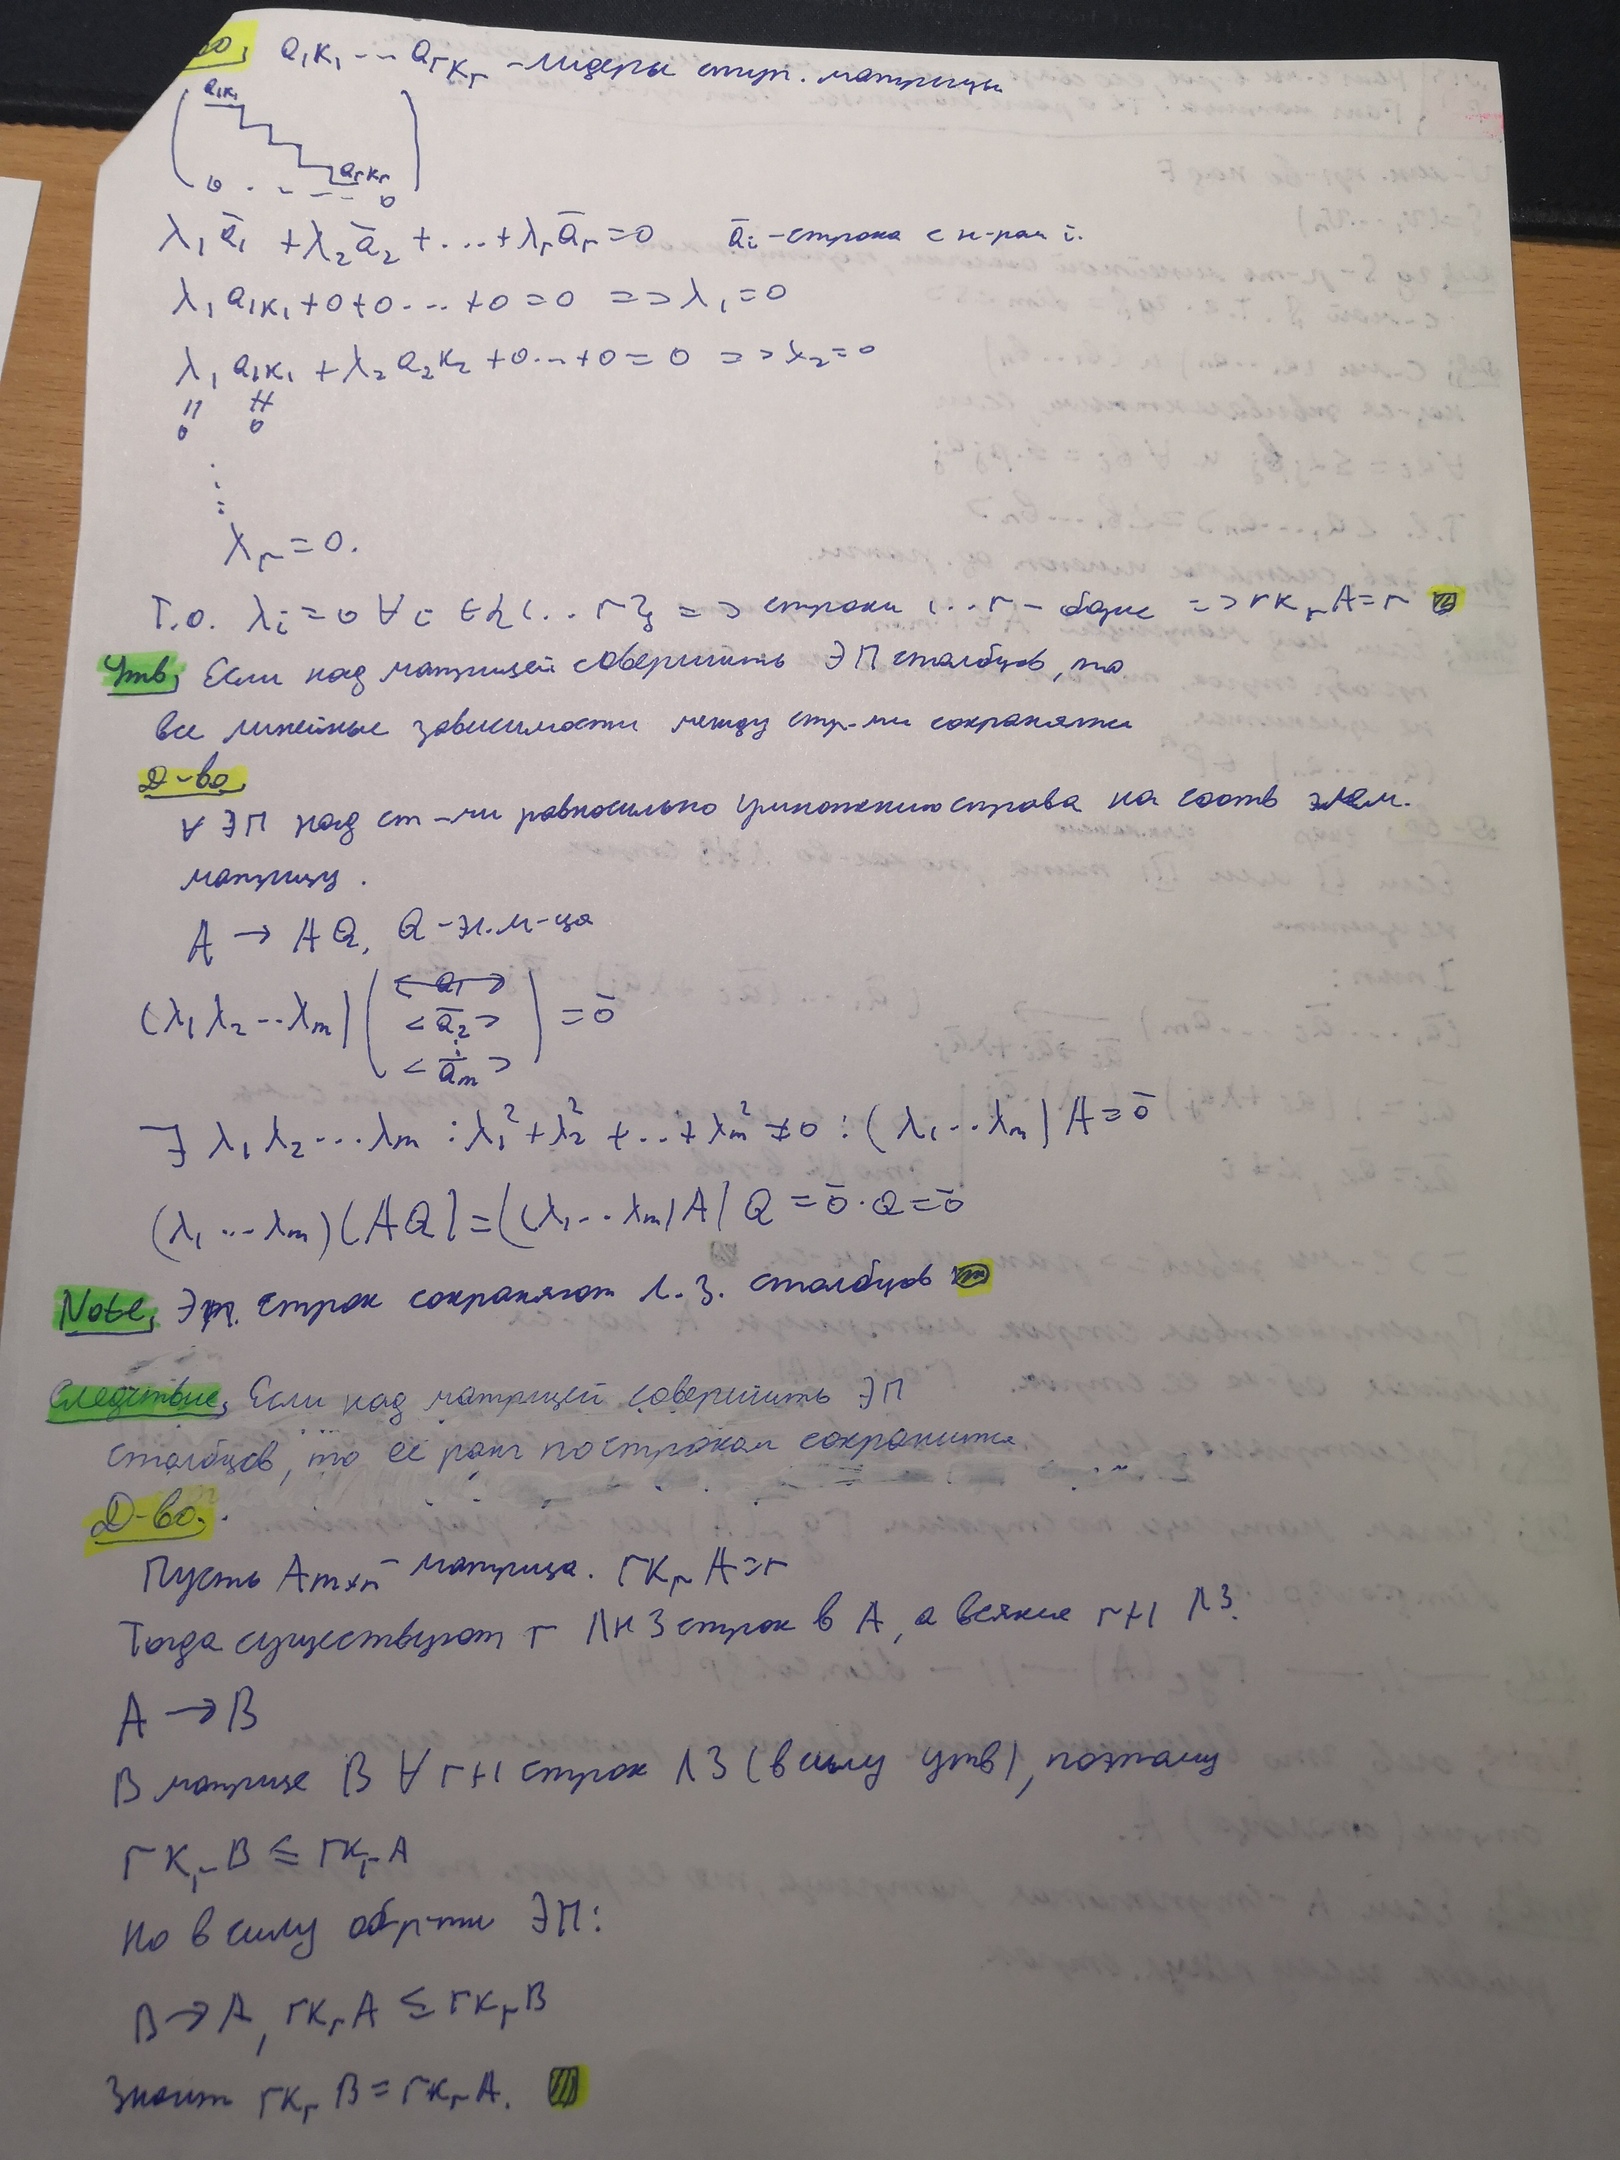 a₁k₁ --- aᵣkᵣ - лидеры ступ. матрицы
a₁k₁
aᵣkᵣ
0 . - - - 0
λ₁ā₁ + λ₂ā₂ + ... + λᵣāᵣ = 0   āᵢ - строка с н-ром i.
λ₁ a₁k₁ + 0 + 0 ... + 0 = 0 => λ₁ = 0
λ₁ a₁k₁ + λ₂ a₂k₂ + 0 ... + 0 = 0 => λ₂ = 0
" #
0 0
λᵣ = 0.
Т.о. λᵢ = 0 ∀i ∈ {1...r} => строки 1...r - базис => rkᵣA = r
Утв. Если над матрицей совершить ЭП столбцов, то
все линейные зависимости между стр-ми сохранятся
Д-во.
∀ ЭП над ст-ми равносильно умножению справа на соотв элем.
матрицу.
A → AQ, Q - эл. м-ца
(λ₁ λ₂ ... λₘ) ( <ā₁> <ā₂> ⋮ <āₘ> ) = ō
∃ λ₁ λ₂ ... λₘ : λ₁² + λ₂² + ... + λₘ² ≠ 0 : (λ₁ ... λₘ) A = ō
(λ₁ ... λₘ)(AQ) = ((λ₁ ... λₘ)A) Q = ō · Q = ō
Note. ЭП. строк сохраняют л. з. столбцов
Следствие. Если над матрицей совершить ЭП
столбцов, то её ранг по строкам сохранится
Д-во.
Пусть Am×n - матрица. rkᵣ A = r
Тогда существуют r ЛНЗ строк в A, а всякие r+1 ЛЗ.
A → B
В матрице B ∀ r+1 строк ЛЗ (в силу утв), поэтому
rkᵣ B ≤ rkᵣ A
Но в силу обр-ти ЭП:
B → A, rkᵣ A ≤ rkᵣ B
Значит rkᵣ B = rkᵣ A.